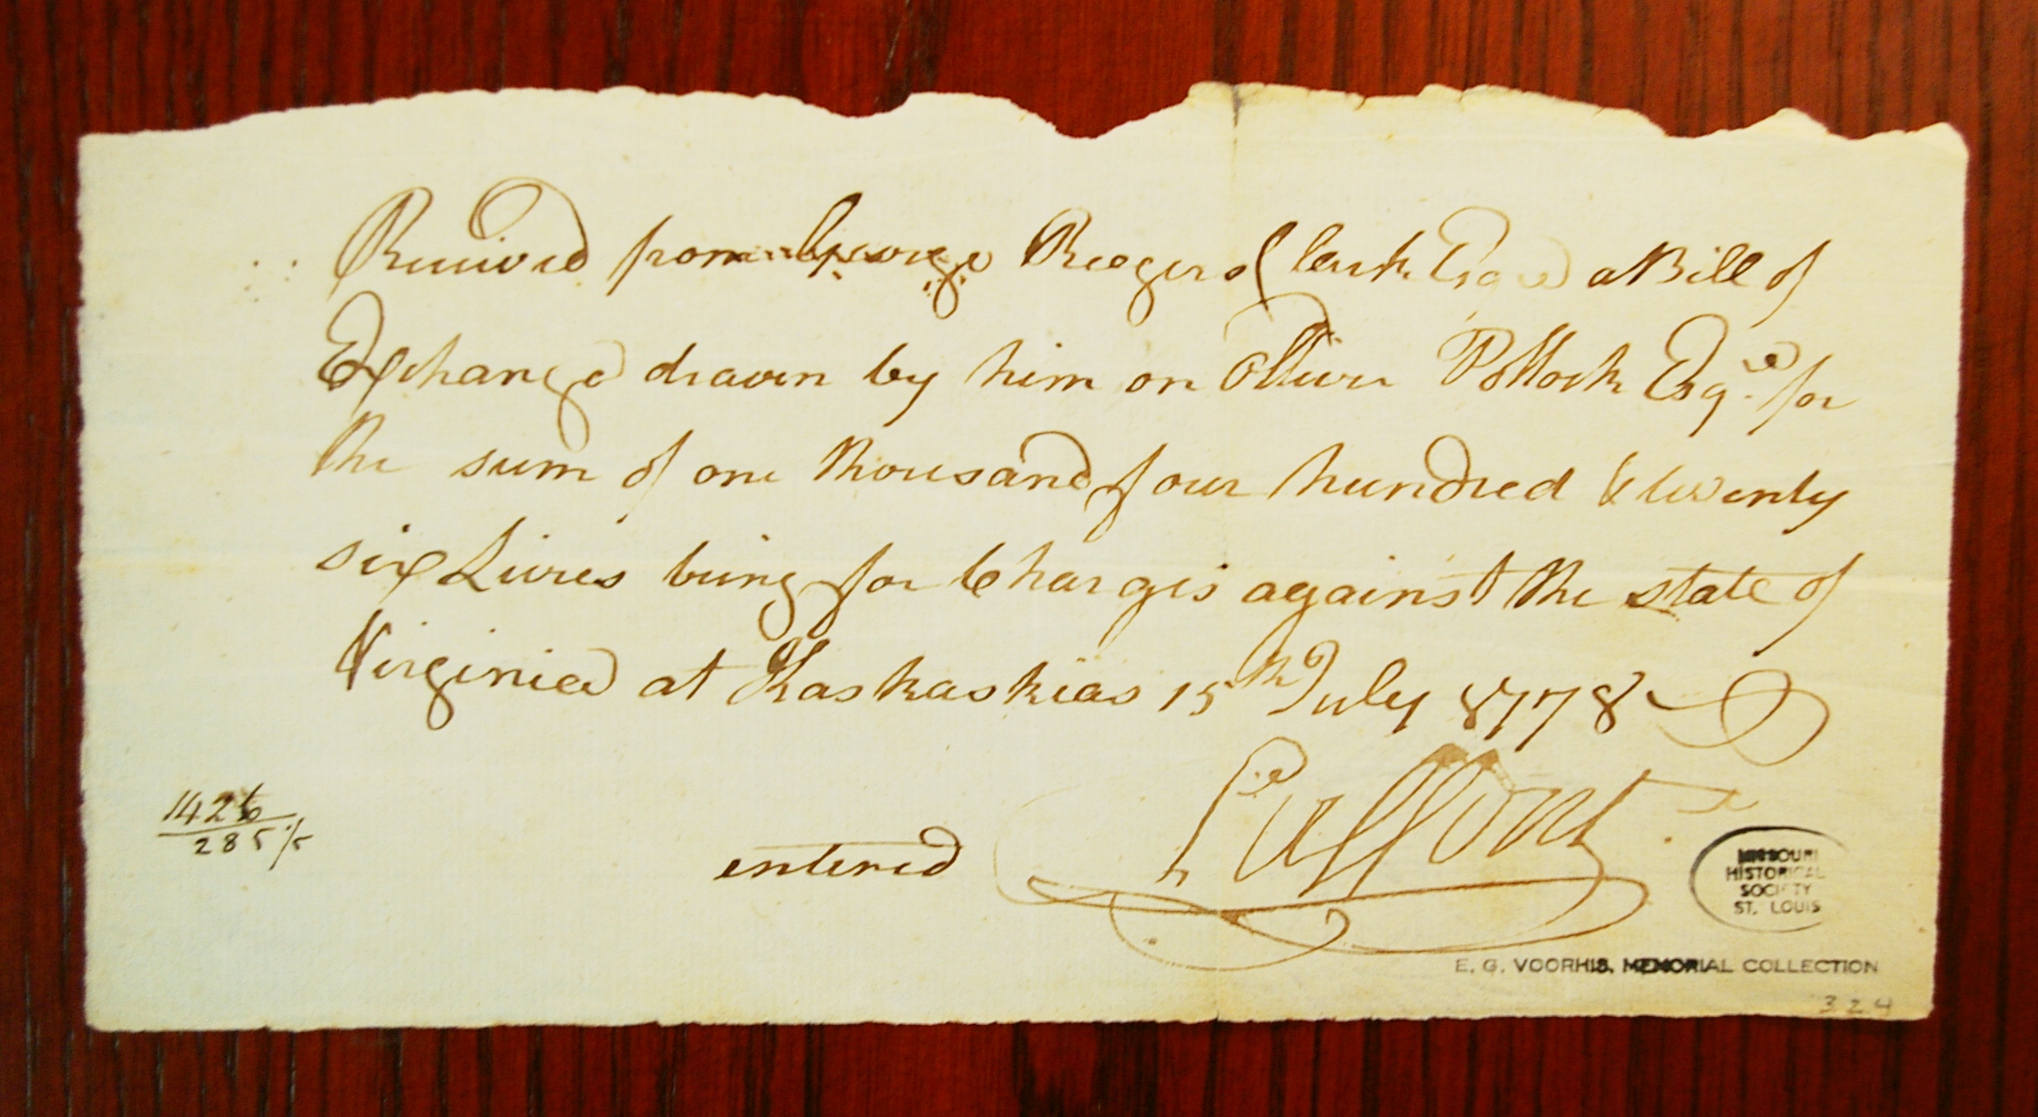 Received from George Roogers Clark Esqe a Bill of
Exchange drawn by him on Oliver Pollock Esqe. for
the sum of one thousand four hundred & twenty
six Livres being for Charges against the state of
Virginia at Kaskaskias 15th July 1778
Laffont
1426
285/5
entered
MISSOURI
HISTORICAL
SOCIETY
ST. LOUIS
E. G. VOORHIS, MEMORIAL COLLECTION
324